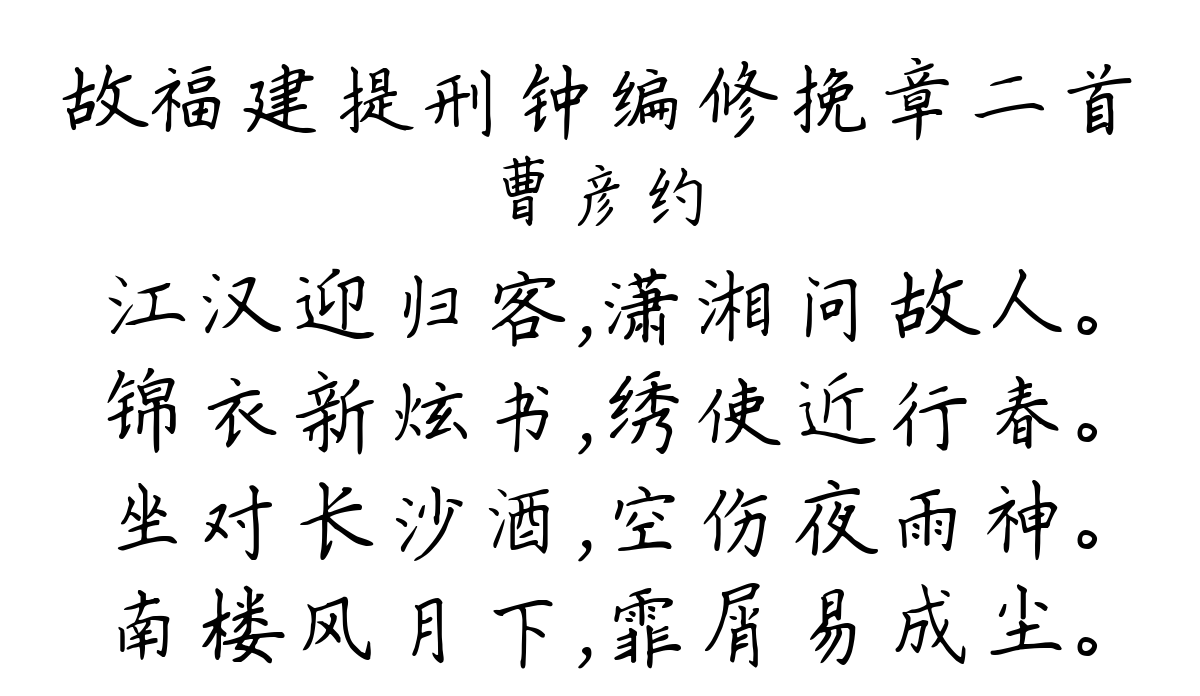 故福建提刑钟编修挽章二首
曹彦约
江汉迎归客,潇湘问故人。
锦衣新炫书,绣使近行春。
坐对长沙酒,空伤夜雨神。
南楼风月下,霏屑易成尘。